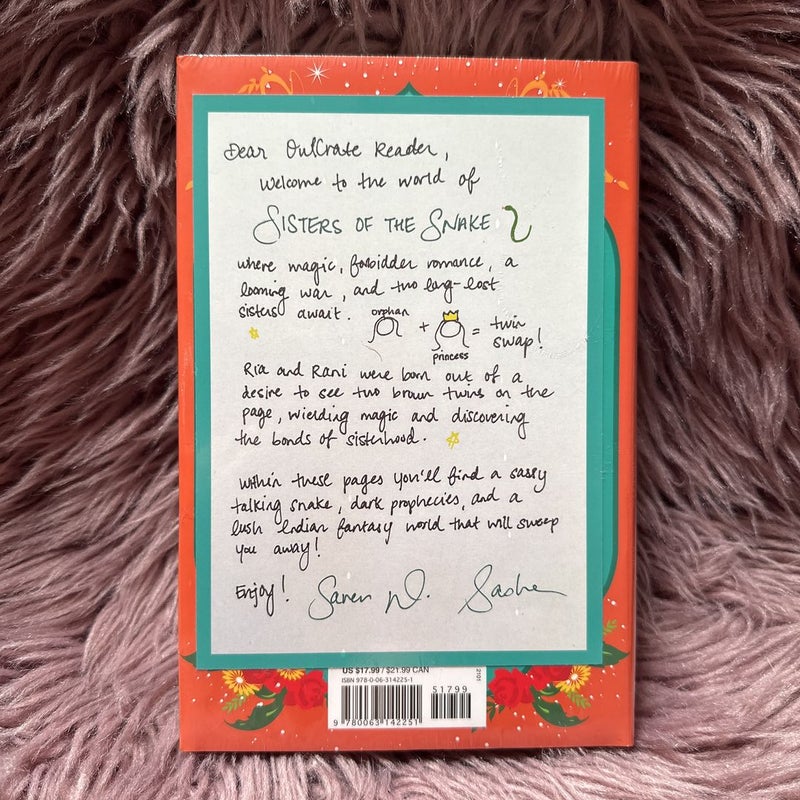 Dear OwlCrate Reader,
Welcome to the world of
SISTERS OF THE SNAKE
where magic, forbidden romance, a
looming war, and two long-lost
sisters await.
orphan
+
princess
= twin
swap!
Ria and Rani were born out of a
desire to see two brown twins on the
page, wielding magic and discovering
the bonds of sisterhood.
Within these pages you'll find a sassy
talking snake, dark prophecies, and a
lush Indian fantasy world that will sweep
you away!
Enjoy! Saren N. Sasha
US $17.99 / $21.99 CAN
ISBN 978-0-06-314225-1
51799
9 780063 142251
2101